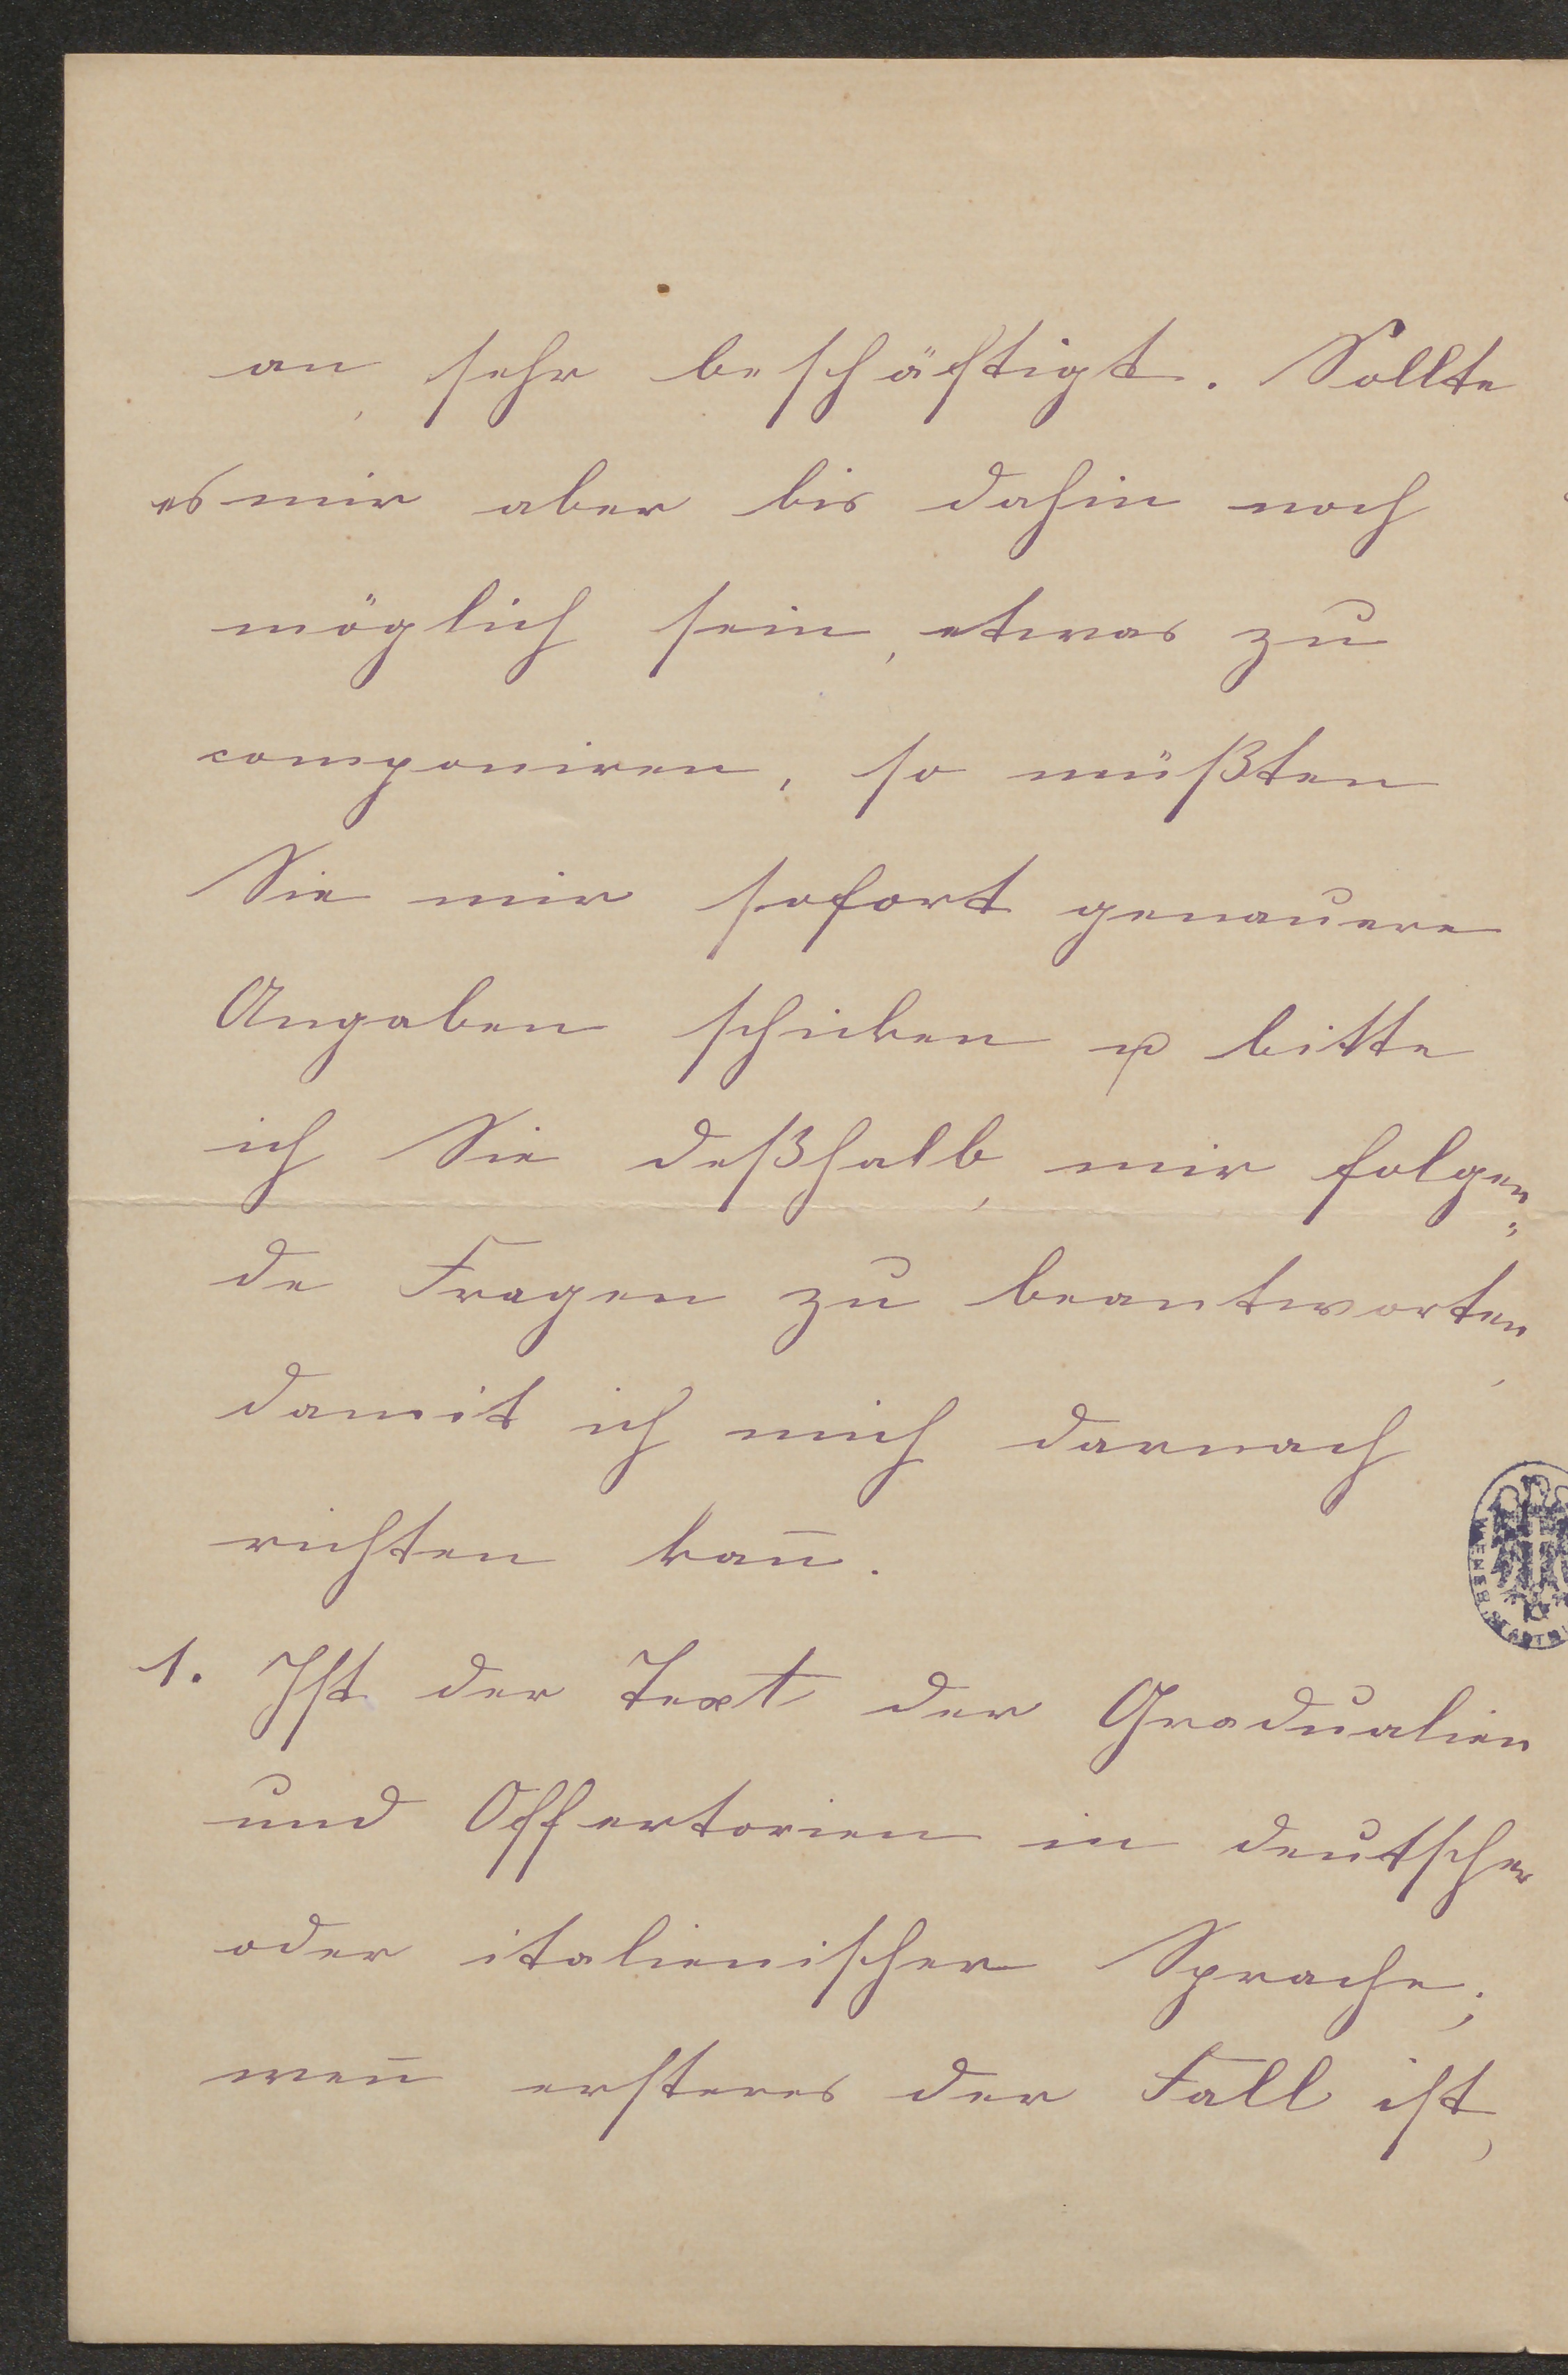 an, sehr beschäftigt. Sollte
es mir aber bis dahin noch
möglich sein, etwas zu
componiren, so müßten
Sie mir sofort genauere
Angaben schicken u bitte
ich Sie deßhalb, mir folgen=
de Fragen zu beantworten,
damit ich mich darnach
richten kan̄.
1. Ist der Text der Gradualien
und Offertorien in deutscher
oder italienischer Sprache;
wen̄ ersteres der Fall ist,